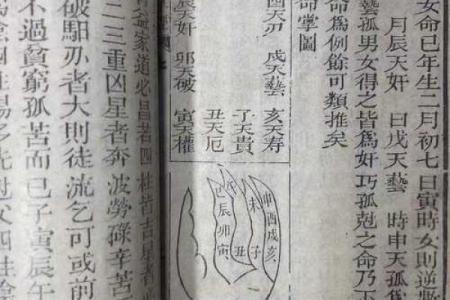 女命已年生二月初七日寅時女則逆數
月辰天奸 日戌天藝 時申天孤
藝孤男女得之皆爲奸巧孤剋之命乃下
命爲例餘可類推矣
命掌圖
天刃 戌天藝 亥天寿
子天貴
丑天厄
辰天奸 卯天破 寅天權
申酉戌亥
未子
午丑
巳辰卯寅
益家道必昌若四柱皆吉星者
二三重凶星者奔波勞碌辛苦
破駔亦者大則徒流乞可或前
不過貧窮孤苦而已子寅辰午